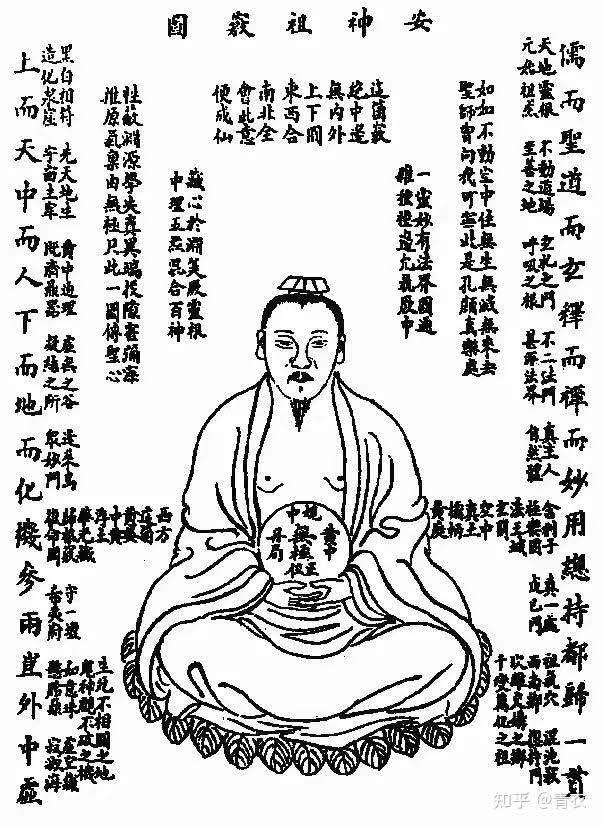 安神祖竅圖
儒而聖道而玄釋而禪而妙用總持都歸一貫
天地靈根 不動道場 玄牝之門 不二法門 真主人
元始祖炁 至善之地 呼吸之根 甚深法界 自然體
舍利子
極樂國
法王城
玄關
空中
真土
黃庭
真一處
戊己門
祖氣穴 混沌竅
西南鄉 總持門
坎離交媾之鄉
千變萬化之祖
如如不動空中住無生無滅無來去
聖師曾向我叮嚀此是孔顏真樂處
一靈妙有法界圓通
離種種邊允執厥中
這箇竅
絕中邊
無內外
上下圓
東西合
南北全
會此意
便成仙
藏心於淵美厥靈根
中理五炁混合百神
源學失真異端投隙害彌
推原氣稟由無極只此一圖傳聖心
規中
黃中
無極
正位
丹扃
黑白相符 先天地生 黃中通理 虛無之谷 蓬萊島
造化泉窟 宇宙主宰 既濟鼎器 凝結之所 眾妙門
西方
黃婆
中黃
淨土
歸根竅
復命關
守一壇
希夷府
生死不相關之地
鬼神覷不破之機
如意珠 虛空藏
懸胎鼎 寂滅海
上而天中而人下而地而化機參兩豈外中虛
知乎 @青衣